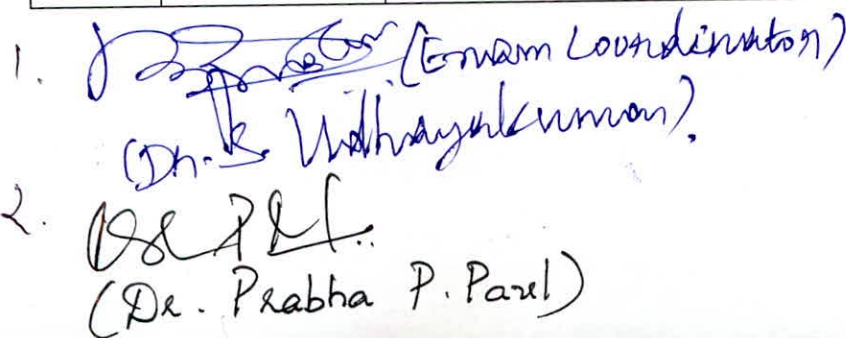 1. (Exam Coordinator)
(Dr. S. Udhayakumar).
2.
(Dr. Prabha P. Patel)